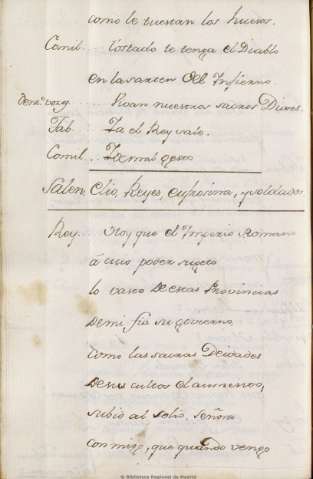 como le tuestan los huesos.
Comil. Tostado te tenga el Diablo
en la sarten del Infierno.
nuestros sacros Dioses.
Fab. Ya el Rey sale.
Comil. Y con mal gesto
Salen Clio, Reyes, Eufrosina, y soldados
Rey. Hoy que el Imperio Romano
á cuio poder sugeto
lo vasto de estas Provincias
de mi, fia su govierno,
como las sacras Deidades
de sus cultos el aumento,
subid al solio, señora
conmigo, que quando vengo
© Biblioteca Regional de Madrid